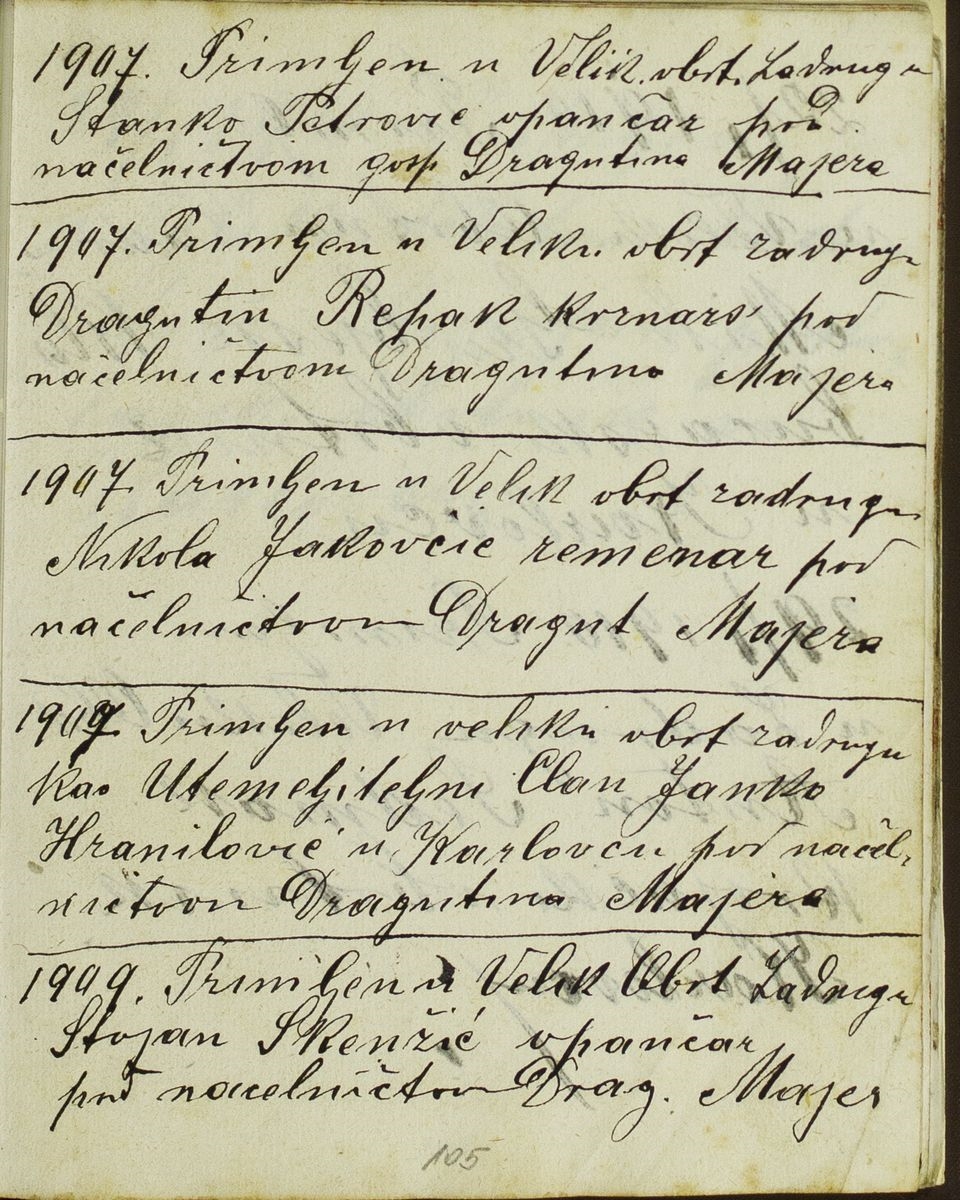 1907. Primljen u Velik. obrt. Zadrugu
Stanko Petrovic opančar pod
načelničtvom gosp Dragutina Majera
1907. Primljen u Veliku obrt zadrugu
Dragutin Repak krznarš pod
načelničtvom Dragutina Majera
1907 Primljen u Velik obrt zadrugu
Nikola Jakovčic remenar pod
načelničtvom Dragut Majera
1909 Primljen u veliku obrt zadrugu
kao Utemeljiteljni Clan Janko
Hranilović u Karlovcu pod načel-
nictvom Dragutina Majera
1909. Primljen u Velik Obrt Zadrugu
Stojan Skenžić opančar
pod nacelničtvom Drag. Majer
105